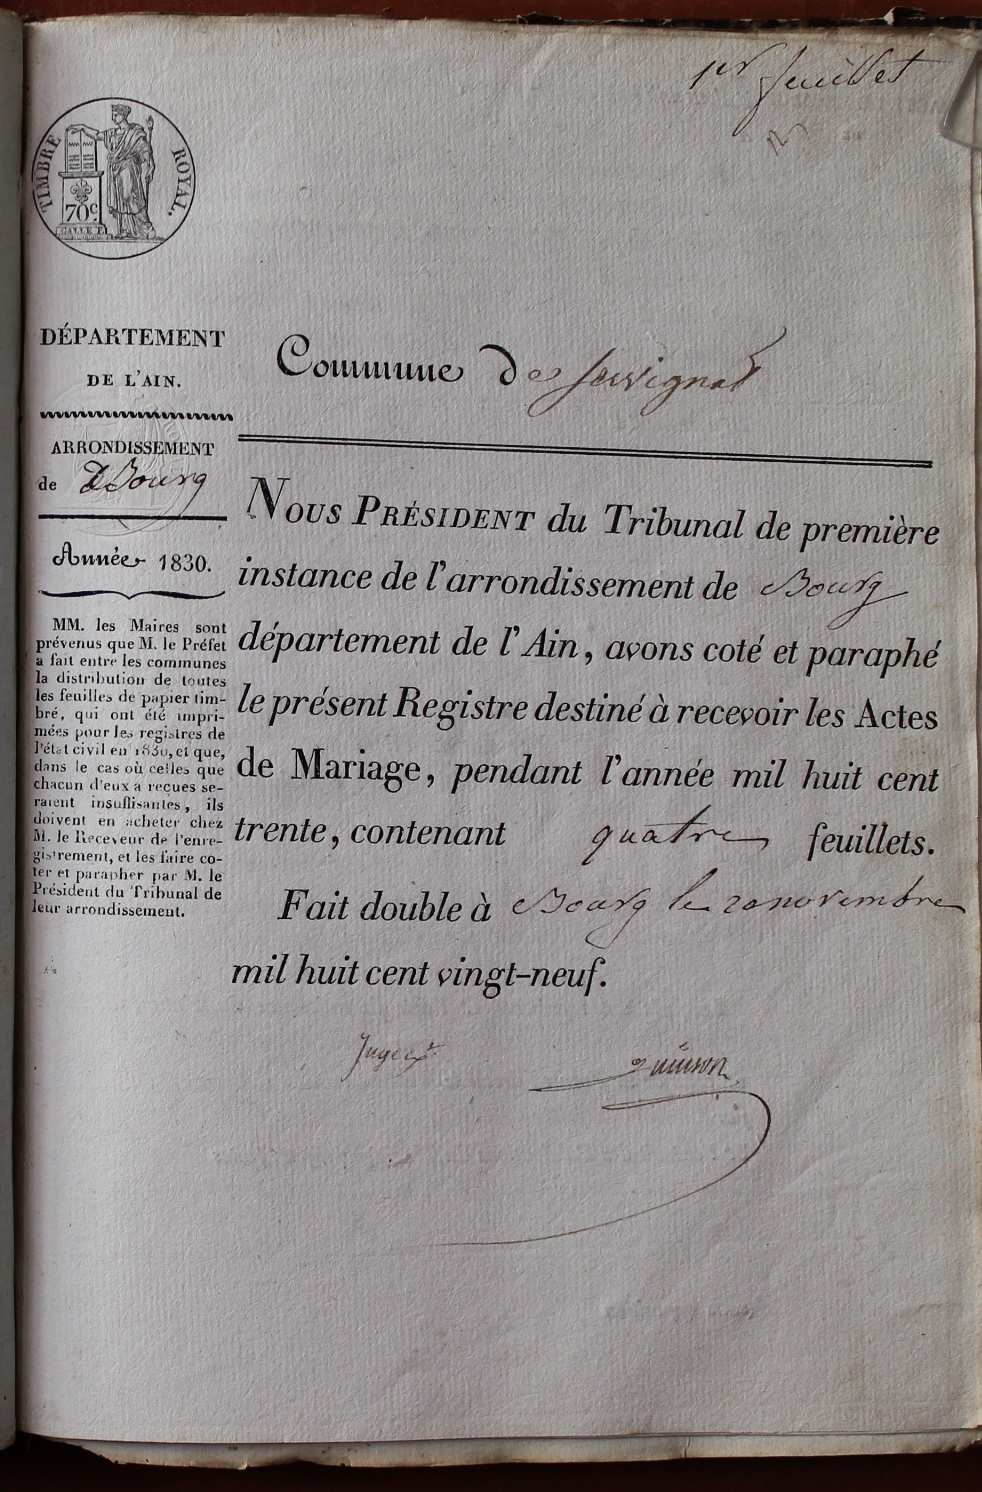 1er feuillet
TIMBRE ROYAL.
70c.
DÉPARTEMENT
DE L'AIN.
ARRONDISSEMENT
de Bourg
Année 1830.
MM. les Maires sont
prévenus que M. le Préfet
a fait entre les communes
la distribution de toutes
les feuilles de papier tim-
bré, qui ont été impri-
mées pour les registres de
l'état civil en 1830, et que,
dans le cas où celles que
chacun d'eux a reçues se-
raient insuffisantes, ils
doivent en acheter chez
M. le Receveur de l'enre-
gistrement, et les faire co-
ter et parapher par M. le
Président du Tribunal de
leur arrondissement.
Commune de Servignat
NOUS PRÉSIDENT du Tribunal de première
instance de l'arrondissement de Bourg
département de l'Ain, avons coté et paraphé
le présent Registre destiné à recevoir les Actes
de Mariage, pendant l'année mil huit cent
trente, contenant quatre feuillets.
Fait double à Bourg le 20 novembre
mil huit cent vingt-neuf.